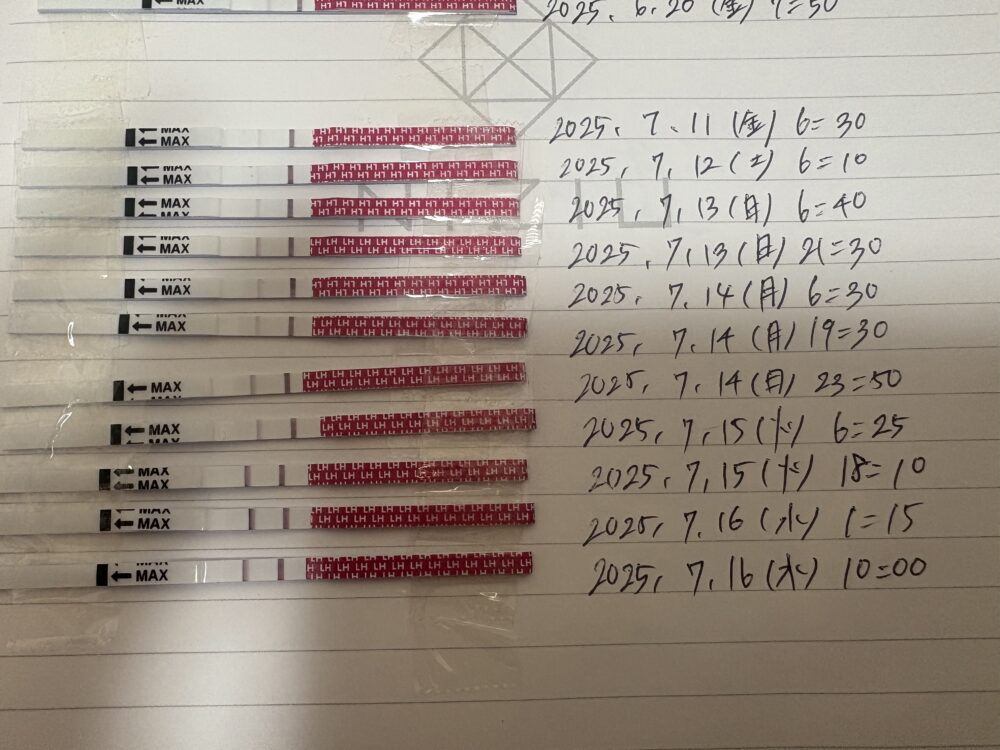 2025. 6. 20 (金) 7=50
MAX
MAX 2025. 7. 11 (金) 6=30
MAX
MAX 2025. 7. 12 (土) 6=10
MAX
MAX 2025. 7. 13 (日) 6=40
MAX
MAX 2025. 7. 13 (日) 21=30
MAX 2025. 7. 14 (月) 6=30
MAX 2025. 7. 14 (月) 19=30
MAX 2025. 7. 14 (月) 23=50
MAX
MAX 2025. 7. 15 (火) 6=25
MAX
MAX 2025. 7. 15 (火) 18=10
MAX
MAX 2025. 7. 16 (水) 1=15
MAX
MAX 2025. 7. 16 (水) 10=00
LH LH LH LH LH LH LH LH LH LH